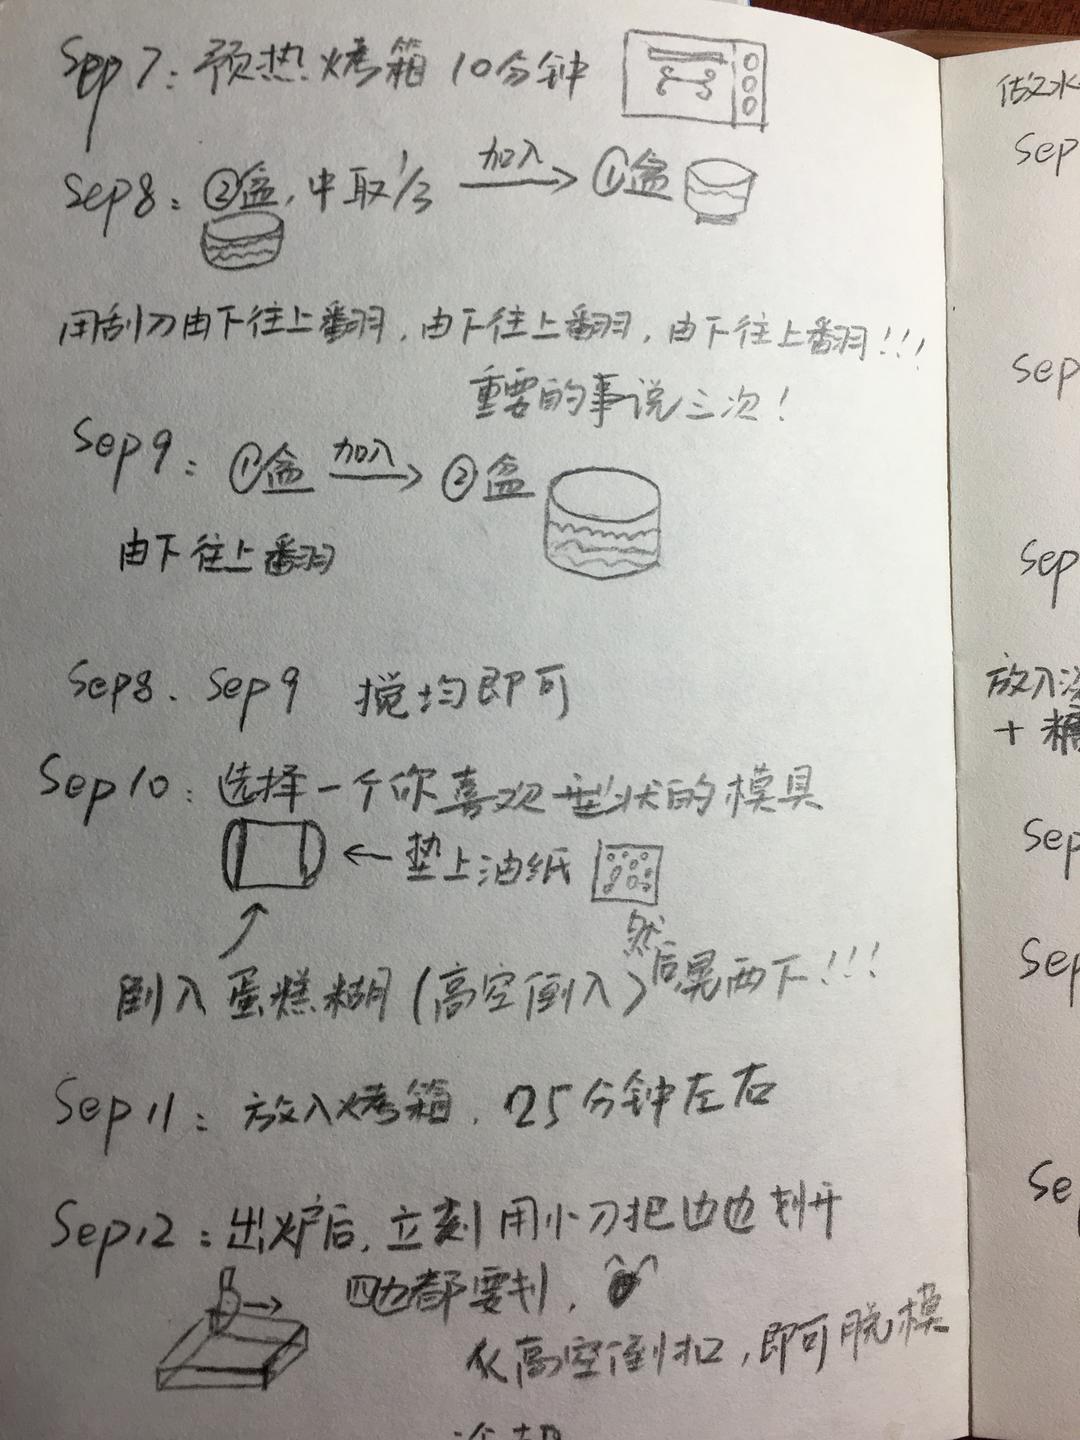 Sep 7: 预热烤箱 10分钟
Sep8: ②盆,中取1/3 加入 ①盆
用刮刀由下往上翻,由下往上翻,由下往上翻!!!
重要的事说三次!
Sep 9: ①盆 加入 ②盆
由下往上翻
Sep8. Sep9 搅均即可
Sep10: 选择一个你喜欢型状的模具
垫上油纸
倒入蛋糕糊(高空倒入)然后晃两下!!!
Sep11: 放入烤箱. 25分钟左右
Sep12: 出炉后,立刻用小刀把边边划开
四边都要划,
从高空倒扣,即可脱模
冷却
做水
Sep
Sep
Sep
放入
+ 糖
Sep
Sep
Se